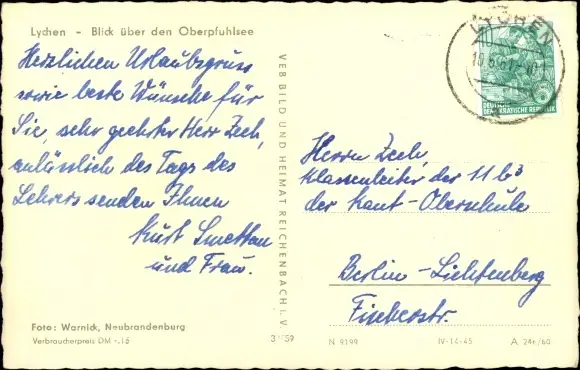 Lychen – Blick über den Oberpfuhlsee
Herzlichen Urlaubsgruss
sowie beste Wünsche für
Sie, sehr geehrter Herr Zech,
anlässlich des Tags des
Lehrers senden Ihnen
Kurt Smettan
und Frau.
Foto: Warnick, Neubrandenburg
Verbraucherpreis DM -,15
VEB BILD UND HEIMAT REICHENBACH i. V.
LYCHEN
DEUTSCHE
DEMOKRATISCHE REPUBLIK
Herrn Zech,
Klassenleiter der 11 b³
der Kant-Oberschule
Berlin-Lichtenberg
Fischerstr.
N 9199
IV-14-45
A 24a/60